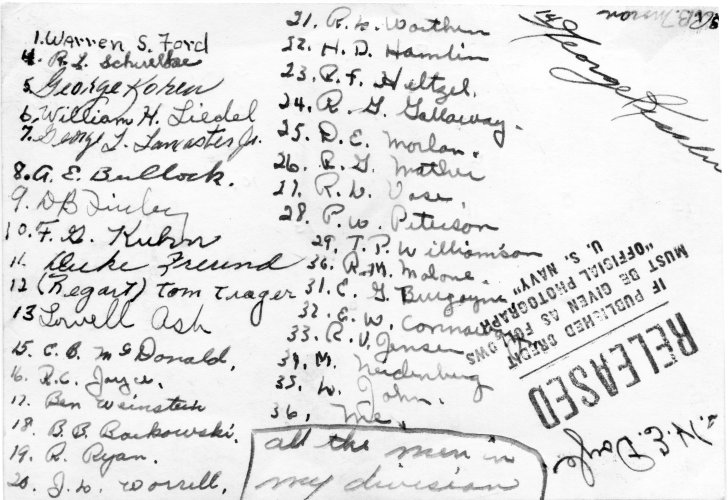 1. Warren S. Ford
4. R. L. Schwelke
5. George Koren
6. William H. Liedel
7. George L. Lancaster Jr.
8. A. E. Bullock.
9. D B Finley
10. F. G. Kuhn
11. Duke Freund
12 (Regart) Tom Trager
13 Lowell Ash
15. C. B. McDonald.
16. R.C. Joyce.
17. Ben Weinstein
18. B. B. Borkowski.
19. R. Ryan.
20. J. W. Worrell.
21. R. W. Worthen
22. H. D. Hamlin
23. R. F. Heltzel.
24. R. G. Gallaway.
25. D. E. Morlan.
26. R. G. Mather
27. R. W. Vose.
28. P. W. Peterson
29. T. P. Williamson
30. R. M. Malone.
31. C. G. Burgoyne
32. E. W. Cormack
33. R. V. Jensen
34. M. Neidenburg
35. W. John.
36. Me.
all the men in
my division
14 George Kessler
2. H. E. Doyle
RELEASED
IF PUBLISHED CREDIT
MUST BE GIVEN AS FOLLOWS
"OFFICIAL PHOTOGRAPH
U. S. NAVY"